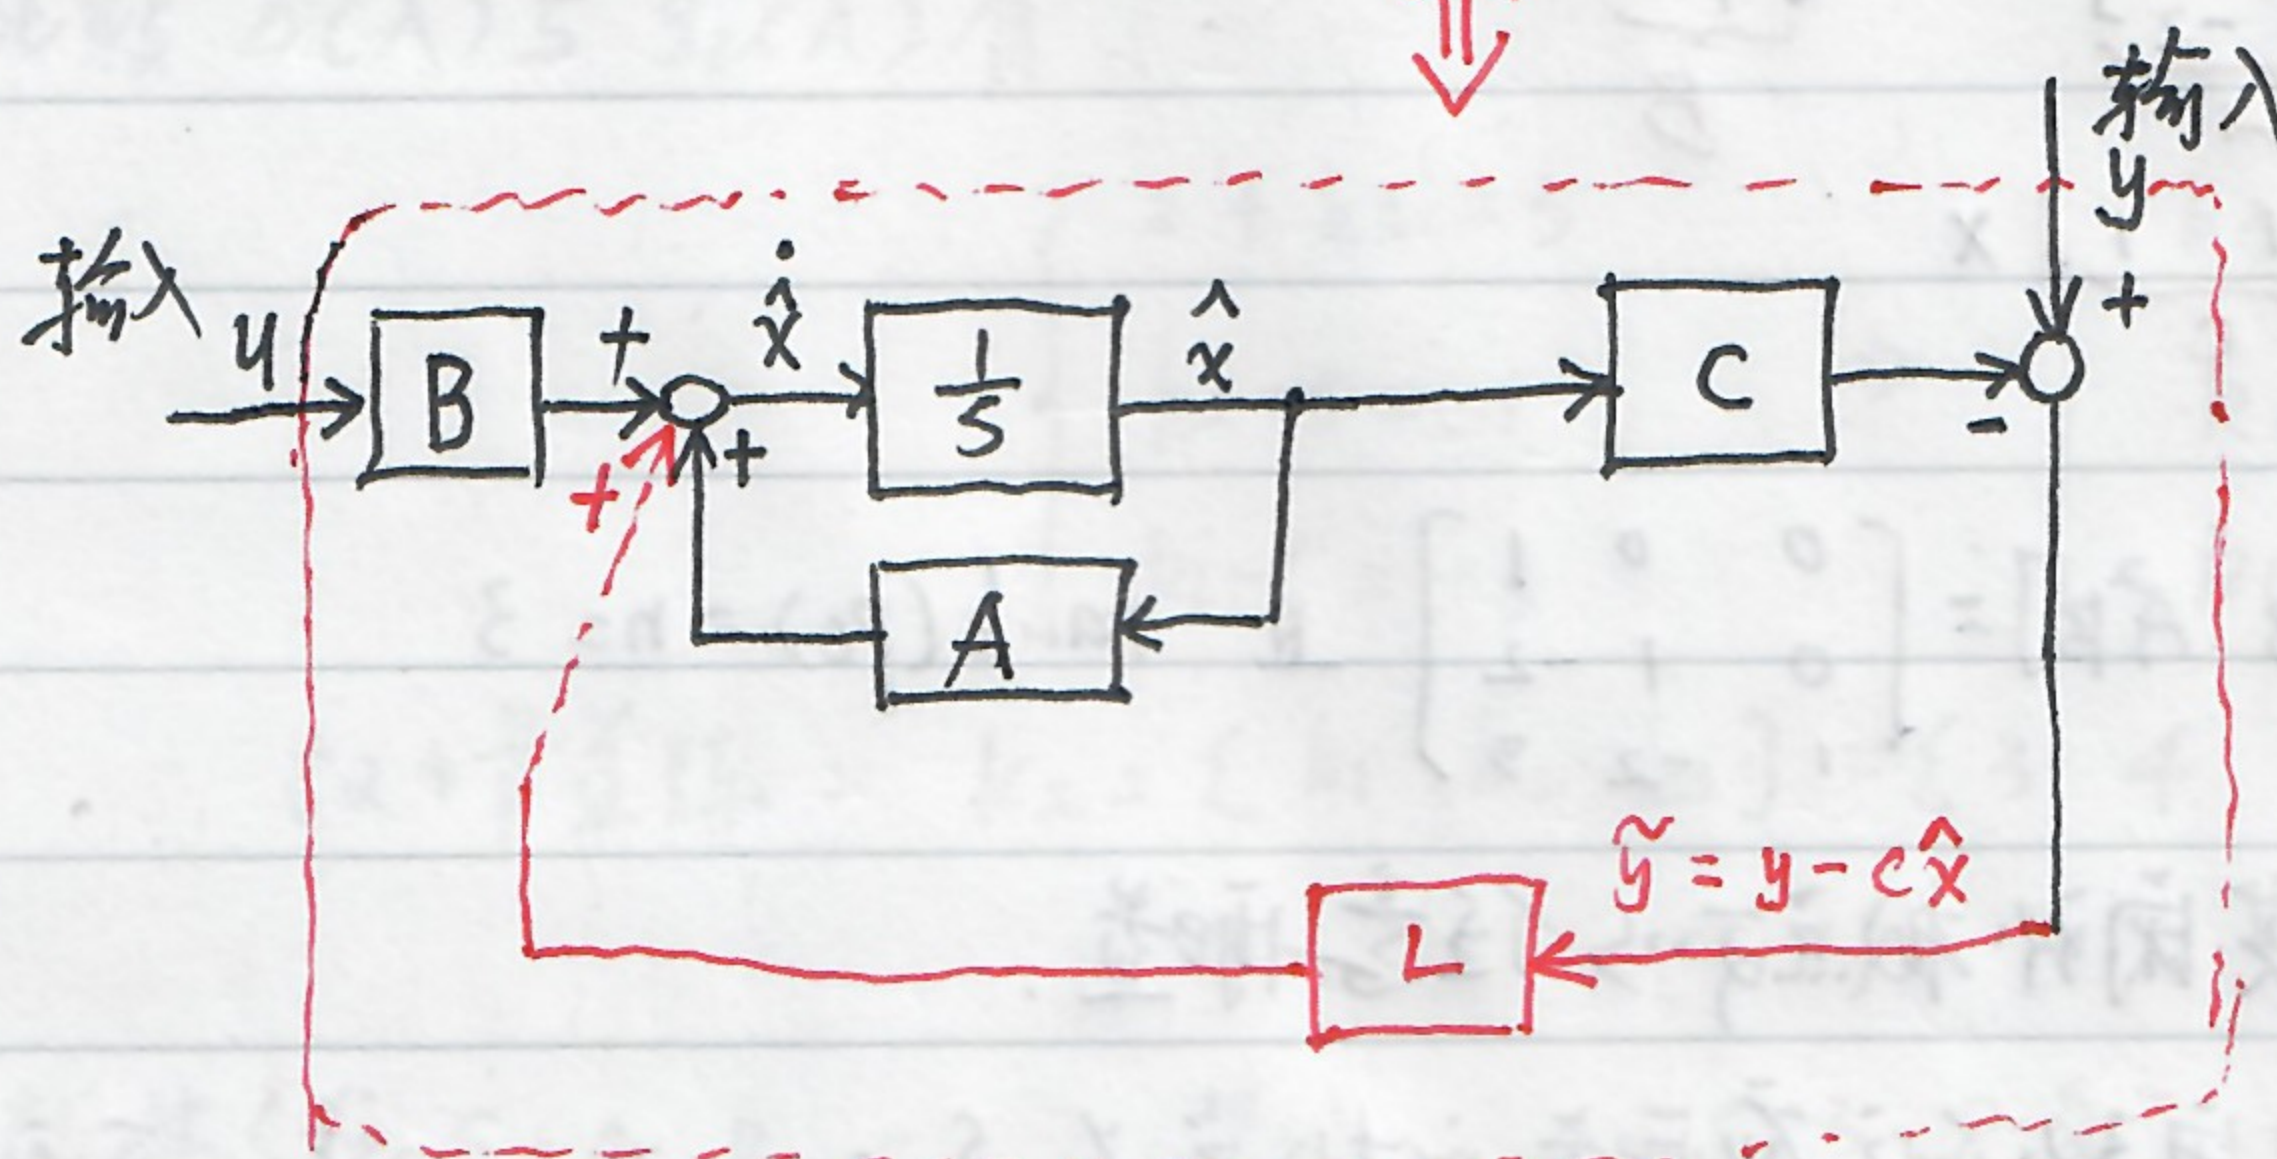 输入
y
输入
u
B
+
+
+
ẋ̂
1/s
x̂
C
+
-
A
ỹ = y - cx̂
L